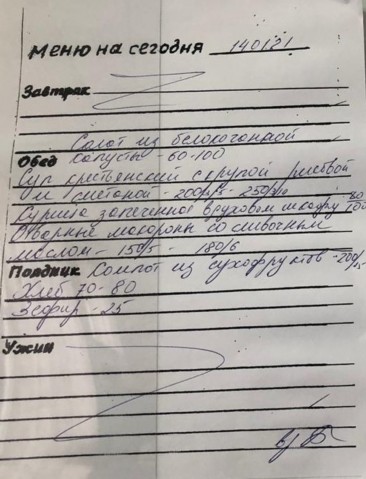 Меню на сегодня 140121
Завтрак
Салат из белокочанной
Обед капусты - 60-100
Суп крестьянский с крупой рисовой
и сметаной - 200/5 - 250/10
Курица запеченная в духовом шкафу 80
100
Отварные макароны со сливочным
маслом - 150/5 - 180/6
Полдник Компот из сухофруктов - 200
Хлеб 70-80
Зефир - 25
Ужин